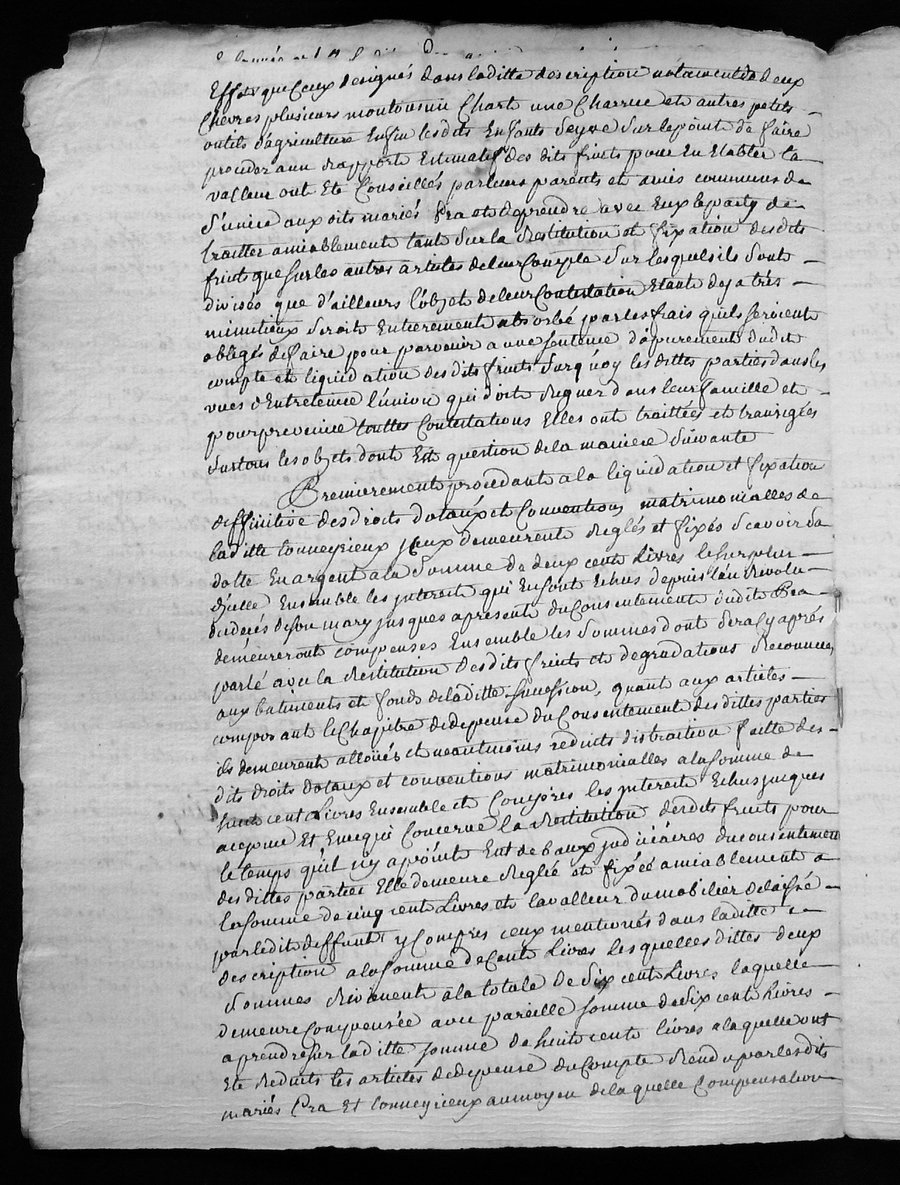 Effets que Ceux designés dans laditte description notament de deux
Chevres plusieurs moutons un Chart une Charrue et autres petits
outils d'agriculture Enfin lesdits Enfants Seyve Sur le point de faire
proceder a un rapport Estimatif des dits fruits pour En Etablir la
valleur ont Eté Conseillés par leurs parents et amis communs de
S'unir aux dits mariés Pra et de prendre avec Eux le party de
traitter amiablement tant Sur la Restitution et fixation desdits
fruits que Sur les autres articles de leur Compte Sur lesquels ils Sont
divisés que d'ailleurs l'objet de leur Contestation Etant deja très
minutieux Seroit Entierement absorbé par les frais qu'ils Seroient
obligés de faire pour parvenir a une Sentence d'apurement dudit
compte et liquidation des dits fruits Surquoy les dittes parties dans les
vues d'Entretenir l'union qui doit Regner dans leur famille et
pour prevenir touttes Contestations Elles ont traittées et transigées
Sur tous les objets dont Est question de la maniere Suivante
Premierement procedant a la liquidation et fixation
deffinitive des droits dotaux et Conventions matrimonialles de
laditte Conneyrieux yceux demeurent Reglés et fixés Scavoir Sa
dotte En argent a la Somme de deux cent Livres le Surplus
d'icelle Ensemble les interets qui En Sont Echus depuis l'an Revolu
du decés de Son mary jusques apresent du Consentement dudit Pra
demeureront compensés Ensemble les Sommes dont Sera Cy après
parlé avec la Restitution desdits fruits et degradations Reconnues
aux batiments et fonds de laditte Succession, quant aux articles
composant le Chapitre de depense du Consentement des dittes parties
ils demeurent alloués et neantmoins reduits distraction faitte des
dits droits dotaux et conventions matrimonialles a la Somme de
huit cent Livres Ensemble et Compris les interets Echus jusques
a ce jour Et En ce qui Concerne la Restitution desdits fruits pour
le temps qu'il n'y a point Eut de baux judiciaires du consentement
des dittes parties Elle demeure Reglée et fixée amiablement a
la Somme de cinq cent Livres et la valleur du mobilier delaissé
par ledit deffunt y Compris ceux mentionés dans laditte
description a la Somme de Cent Livres lesquelles dittes deux
Sommes Reviennent a la totale de Six cent Livres laquelle
demeure Compensée avec pareille Somme de Six cent Livres
a prendre Sur laditte Somme de huit cent Livres a laquelle ont
Eté Reduits les articles de depense du Compte Rendu par lesdits
mariés Pra Et Conneyrieux au moyen de laquelle Compensation